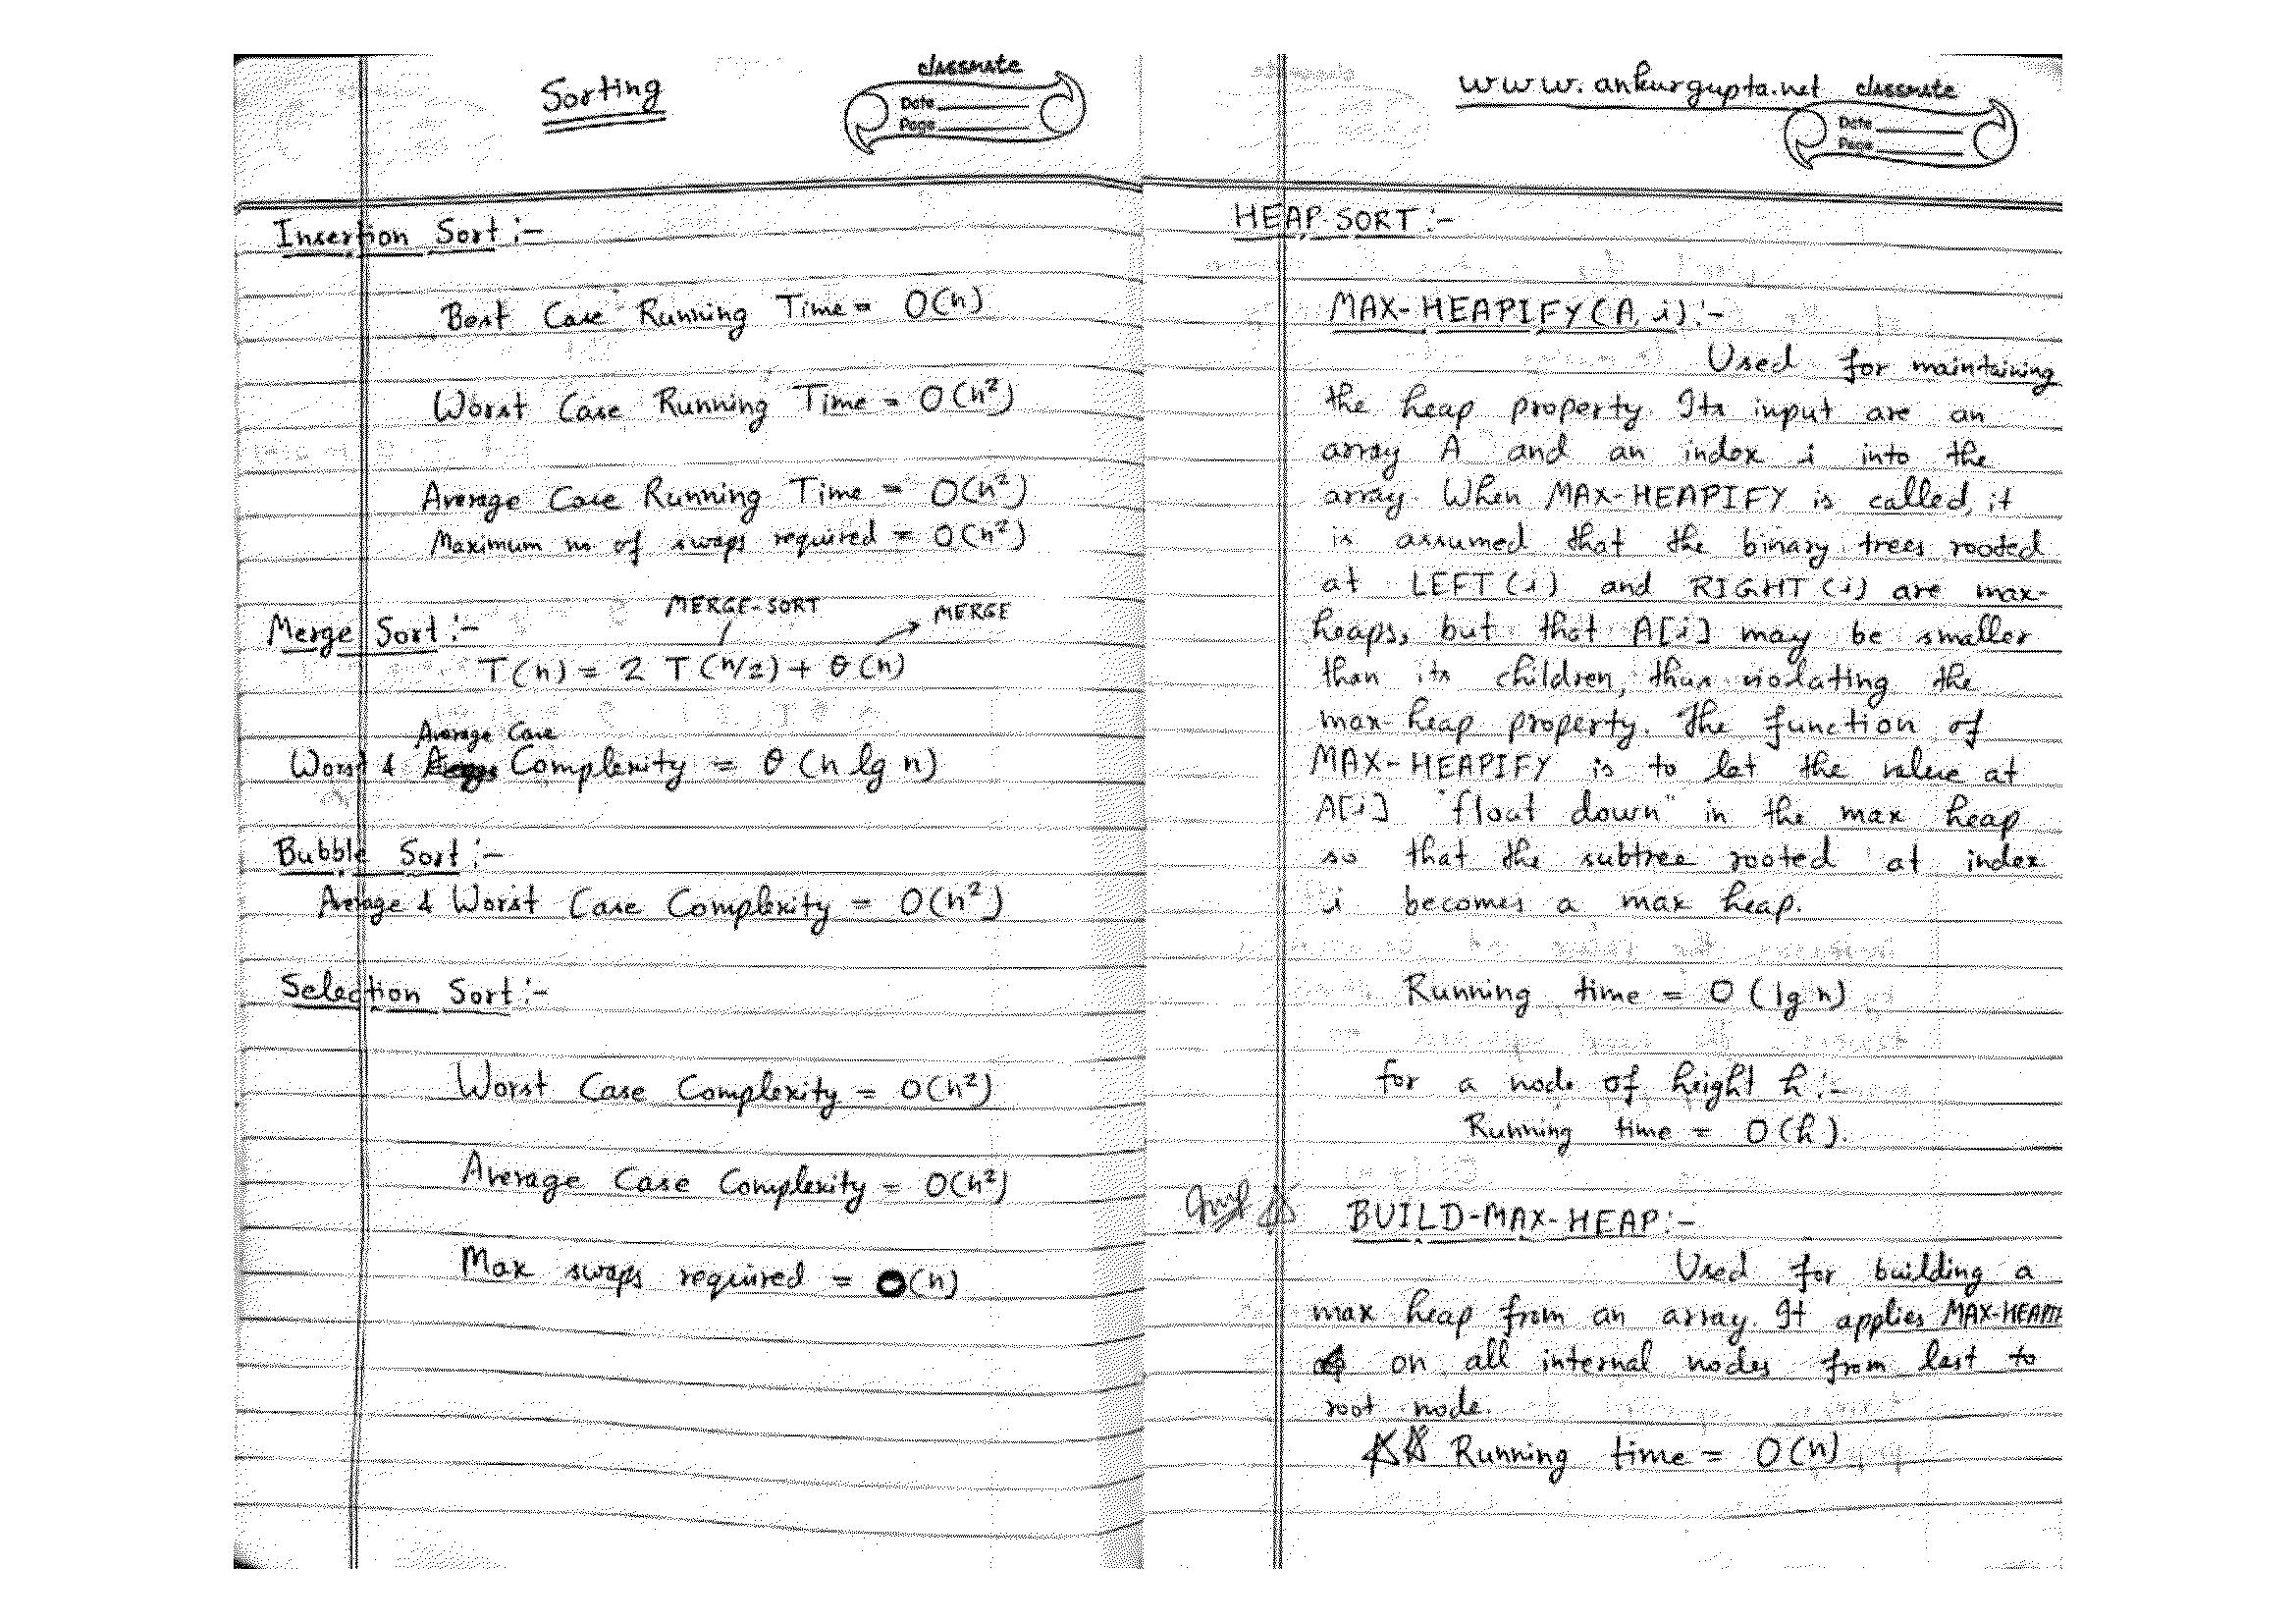 Sorting
classmate
Date
Page
Insertion Sort :-
Best Case Running Time = O(n)
Worst Case Running Time = O(n²)
Average Case Running Time = O(n²)
Maximum no of swaps required = O(n²)
MERGE-SORT
MERGE
Merge Sort :-
T(n) = 2 T(n/2) + θ(n)
Average Case
Worst & Complexity = θ (n lg n)
Bubble Sort :-
Average & Worst Case Complexity = O(n²)
Selection Sort :-
Worst Case Complexity = O(n²)
Average Case Complexity = O(n²)
Max swaps required = O(n)
www.ankurgupta.net classmate
Date
Page
HEAP SORT :-
MAX-HEAPIFY(A, i) :-
Used for maintaining
the heap property. Its input are an
array A and an index i into the
array. When MAX-HEAPIFY is called, it
is assumed that the binary trees rooted
at LEFT(i) and RIGHT(i) are max-
heaps, but that A[i] may be smaller
than its children, thus violating the
max-heap property. The function of
MAX-HEAPIFY is to let the value at
A[i] "float down" in the max heap
so that the subtree rooted at index
i becomes a max heap.
Running time = O(lg n)
for a node of height h :-
Running time = O(h).
BUILD-MAX-HEAP :-
Used for building a
max heap from an array. It applies MAX-HEAPIF
on all internal nodes from last to
root node.
Running time = O(n)